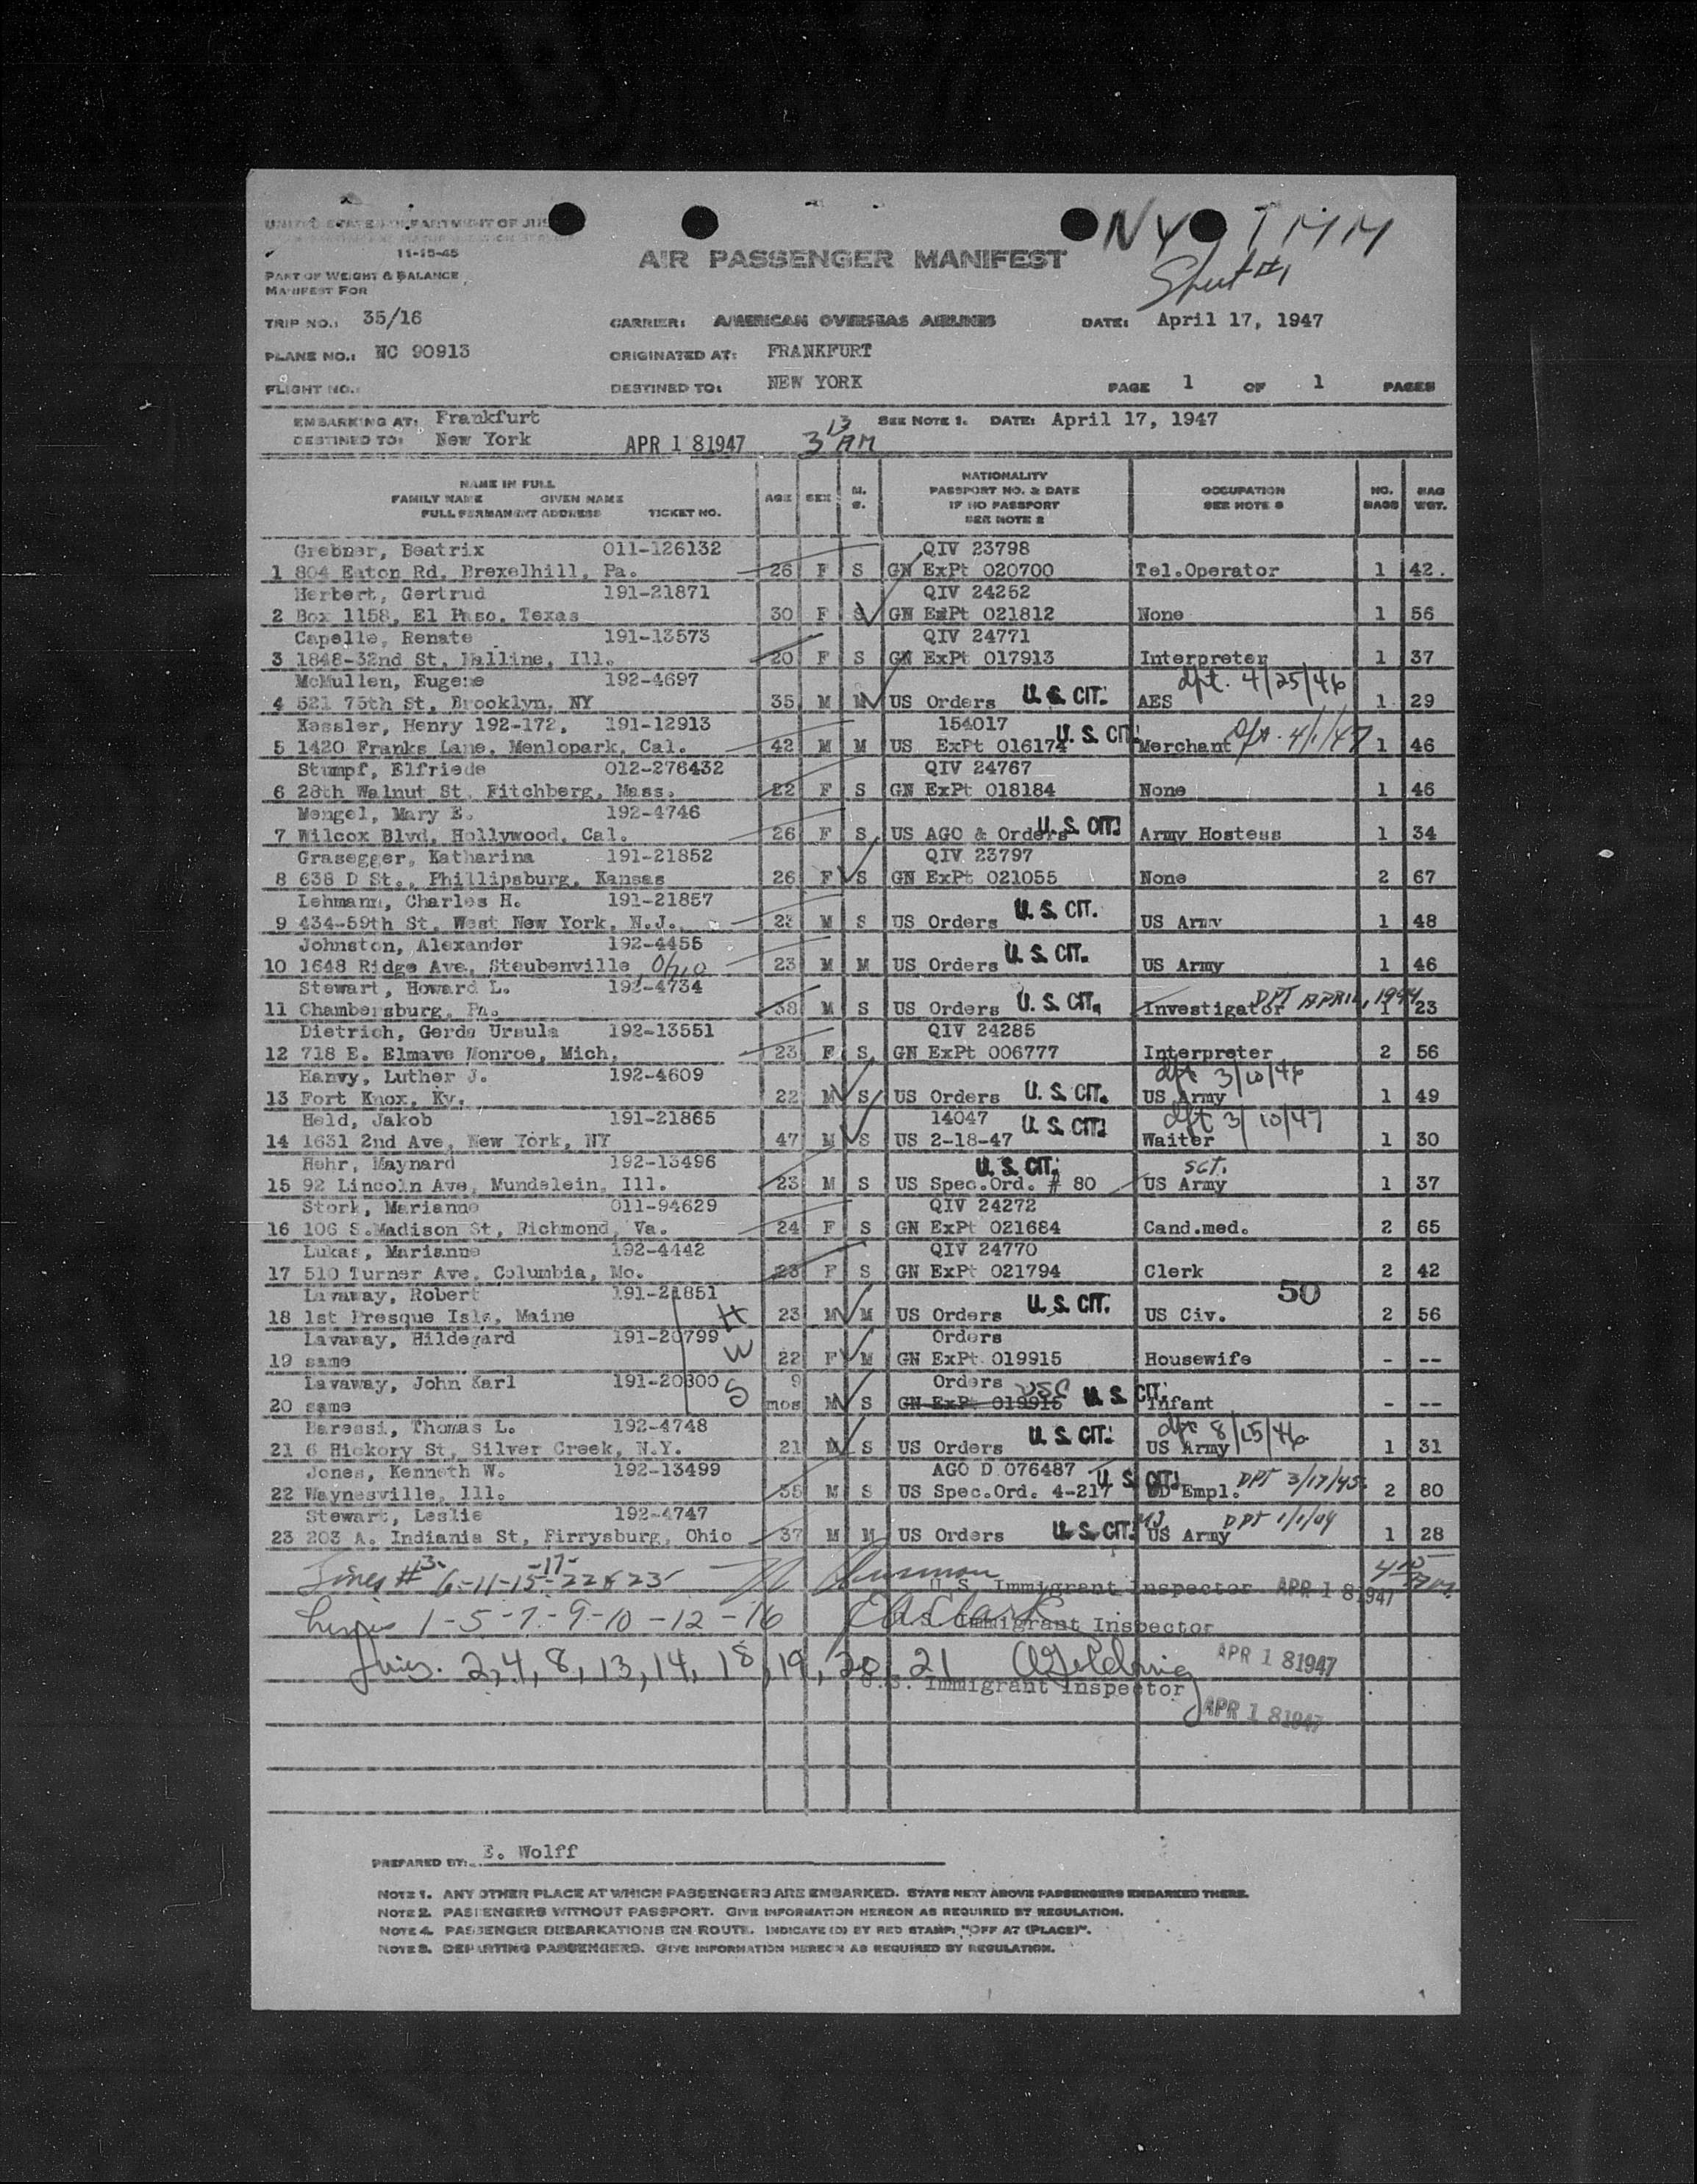 NY TMM
Sheet #1
UNITED STATES DEPARTMENT OF JUS
11-15-45
AIR PASSENGER MANIFEST
PART OF WEIGHT & BALANCE
MANIFEST FOR
TRIP NO.: 35/16 CARRIER: AMERICAN OVERSEAS AIRLINES DATE: April 17, 1947
PLANE NO.: NC 90913 ORIGINATED AT: FRANKFURT
FLIGHT NO.: DESTINED TO: NEW YORK PAGE 1 OF 1 PAGES
EMBARKING AT: Frankfurt SEE NOTE 1. DATE: April 17, 1947
DESTINED TO: New York APR 18 1947 3 13 AM
NAME IN FULL
FAMILY NAME GIVEN NAME
FULL PERMANENT ADDRESS TICKET NO. AGE SEX M. S. NATIONALITY PASSPORT NO. & DATE IF NO PASSPORT SEE NOTE 2 OCCUPATION SEE NOTE 3 NO. BAGS BAG WGT.
Grebner, Beatrix 011-126132 QIV 23798
1 804 Eaton Rd, Brexelhill, Pa. 26 F S GN ExPt 020700 Tel.Operator 1 42.
Herbert, Gertrud 191-21871 QIV 24252
2 Box 1158, El Paso, Texas 30 F S GN ExPt 021812 None 1 56
Capelle, Renate 191-13573 QIV 24771
3 1848-32nd St, Malline, Ill. 20 F S GN ExPt 017913 Interpreter 1 37
McMullen, Eugene 192-4697 dpt. 4/25/46
4 521 75th St, Brooklyn, NY 35 M M US Orders U. S. CIT. AES 1 29
Kassler, Henry 192-172, 191-12913 154017
5 1420 Franks Lane, Menlopark, Cal. 42 M M US ExPt 016174 U. S. CIT. Merchant Dpt. 4/1/47 1 46
Stumpf, Elfriede 012-276432 QIV 24767
6 28th Walnut St, Fitchberg, Mass. 22 F S GN ExPt 018184 None 1 46
Mengel, Mary E. 192-4746
7 Wilcox Blvd, Hollywood, Cal. 26 F S US AGO & Orders U. S. CIT. Army Hostess 1 34
Grasegger, Katharina 191-21852 QIV 23797
8 638 D St., Phillipsburg, Kansas 26 F S GN ExPt 021055 None 2 67
Lehmann, Charles H. 191-21857
9 434-59th St, West New York, N.J. 23 M S US Orders U. S. CIT. US Army 1 48
Johnston, Alexander 192-4455
10 1648 Ridge Ave, Steubenville Ohio 23 M M US Orders U. S. CIT. US Army 1 46
Stewart, Howard L. 192-4734
11 Chambersburg, Pa. 38 M S US Orders U. S. CIT. Investigator DPT APRIL, 1944 1 23
Dietrich, Gerda Ursula 192-13551 QIV 24285
12 718 E. Elmave Monroe, Mich. 23 F S GN ExPt 006777 Interpreter 2 56
Hanvy, Luther J. 192-4609 dpt 3/10/46
13 Fort Knox, Ky. 22 M S US Orders U. S. CIT. US Army 1 49
Held, Jakob 191-21865 14047 dpt 3/10/47
14 1631 2nd Ave, New York, NY 47 M S US 2-18-47 U. S. CIT. Waiter 1 30
Hehr, Maynard 192-13496 U. S. CIT. SGT.
15 92 Lincoln Ave, Mundelein, Ill. 23 M S US Spec.Ord. # 80 US Army 1 37
Stork, Marianne 011-94629 QIV 24272
16 106 S.Madison St, Richmond, Va. 24 F S GN ExPt 021684 Cand.med. 2 65
Lukas, Marianne 192-4442 QIV 24770
17 510 Turner Ave, Columbia, Mo. 23 F S GN ExPt 021794 Clerk 2 42
Lavaway, Robert 191-21851 50
18 1st Presque Isle, Maine H 23 M M US Orders U. S. CIT. US Civ. 2 56
Lavaway, Hildegard 191-20799 Orders
19 same W 22 F M GN ExPt 019915 Housewife - --
Lavaway, John Karl 191-20800 9 Orders USC
20 same S mos M S GN ExPt 019915 U. S. CIT. Infant - --
Baressi, Thomas L. 192-4748 dpt 8/15/46
21 6 Hickory St, Silver Creek, N.Y. 21 M S US Orders U. S. CIT. US Army 1 31
Jones, Kenneth W. 192-13499 AGO D 076487
22 Waynesville, Ill. 38 M S US Spec.Ord. 4-217 U. S. CIT. WD Empl. DPT 3/17/45 2 80
Stewart, Leslie 192-4747
23 203 A. Indiania St, Pirrysburg, Ohio 37 M M US Orders U. S. CIT. US Army DPT 1/1/04 1 28
Lines # 3-6-11-15-17-22 & 23
U.S. Immigrant Inspector APR 18 1947
Lines 1-5-7-9-10-12-16
U.S. Immigrant Inspector
Lines. 2,4,8,13,14,18,19,20,21 APR 18 1947
U.S. Immigrant Inspector
APR 18 1947
PREPARED BY: E. Wolff
NOTE 1. ANY OTHER PLACE AT WHICH PASSENGERS ARE EMBARKED. STATE NEXT ABOVE PASSENGERS EMBARKED THERE.
NOTE 2. PASSENGERS WITHOUT PASSPORT. GIVE INFORMATION HEREON AS REQUIRED BY REGULATION.
NOTE 4. PASSENGER DEBARKATIONS EN ROUTE. INDICATE (D) BY RED STAMP: "OFF AT (PLACE)".
NOTE 3. DEPARTING PASSENGERS. GIVE INFORMATION HEREON AS REQUIRED BY REGULATION.